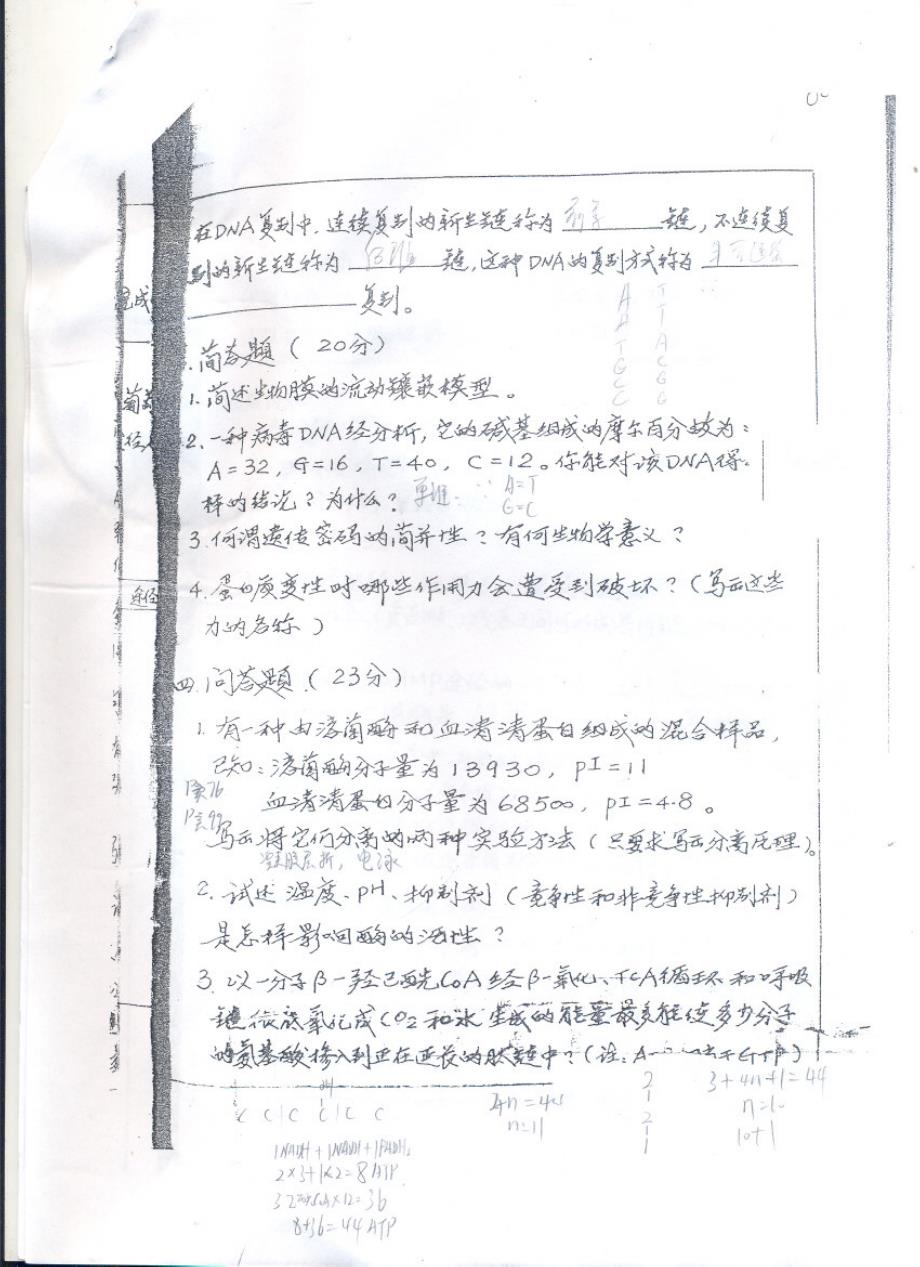 在DNA复制中,连续复制的新生链称为 前导 链,不连续复
制的新生链称为 链,这种DNA的复制方式称为
复制。
完成
A T
A T
T A
G C
C G
C G
简答题(20分)
1.简述生物膜的流动镶嵌模型。
2.一种病毒DNA经分析,它的碱基组成的摩尔百分数为:
A=32, G=16, T=40, C=12。你能对该DNA得
样的结论?为什么? 单链 ∵ A=T
G=C
3.何谓遗传密码的简并性?有何生物学意义?
途径
4.蛋白质变性时哪些作用力会遭受到破坏?(写出这些
力的名称)
四.问答题(23分)
1.有一种由溶菌酶和血清清蛋白组成的混合样品,
已知:溶菌酶分子量为13930, pI=11
血清清蛋白分子量为68500, pI=4.8。
写出将它们分离的两种实验方法(只要求写出分离原理)。
凝胶层析,电泳
2.试述温度、pH、抑制剂(竞争性和非竞争性抑制剂)
是怎样影响酶的活性?
3.以一分子β-羟己酰CoA经β-氧化、TCA循环和呼吸
链彻底氧化成CO2和水生成的能量最多能使多少分子
的氨基酸掺入到正在延长的肽链中?(注:
C C C C C
4n=44
n=11
2
1
2
1
3+4n+1=44
n=10
10+1
1NADH+1NADH+1FADH2
2×3+1×2=8ATP
×12=36
8+36=44ATP